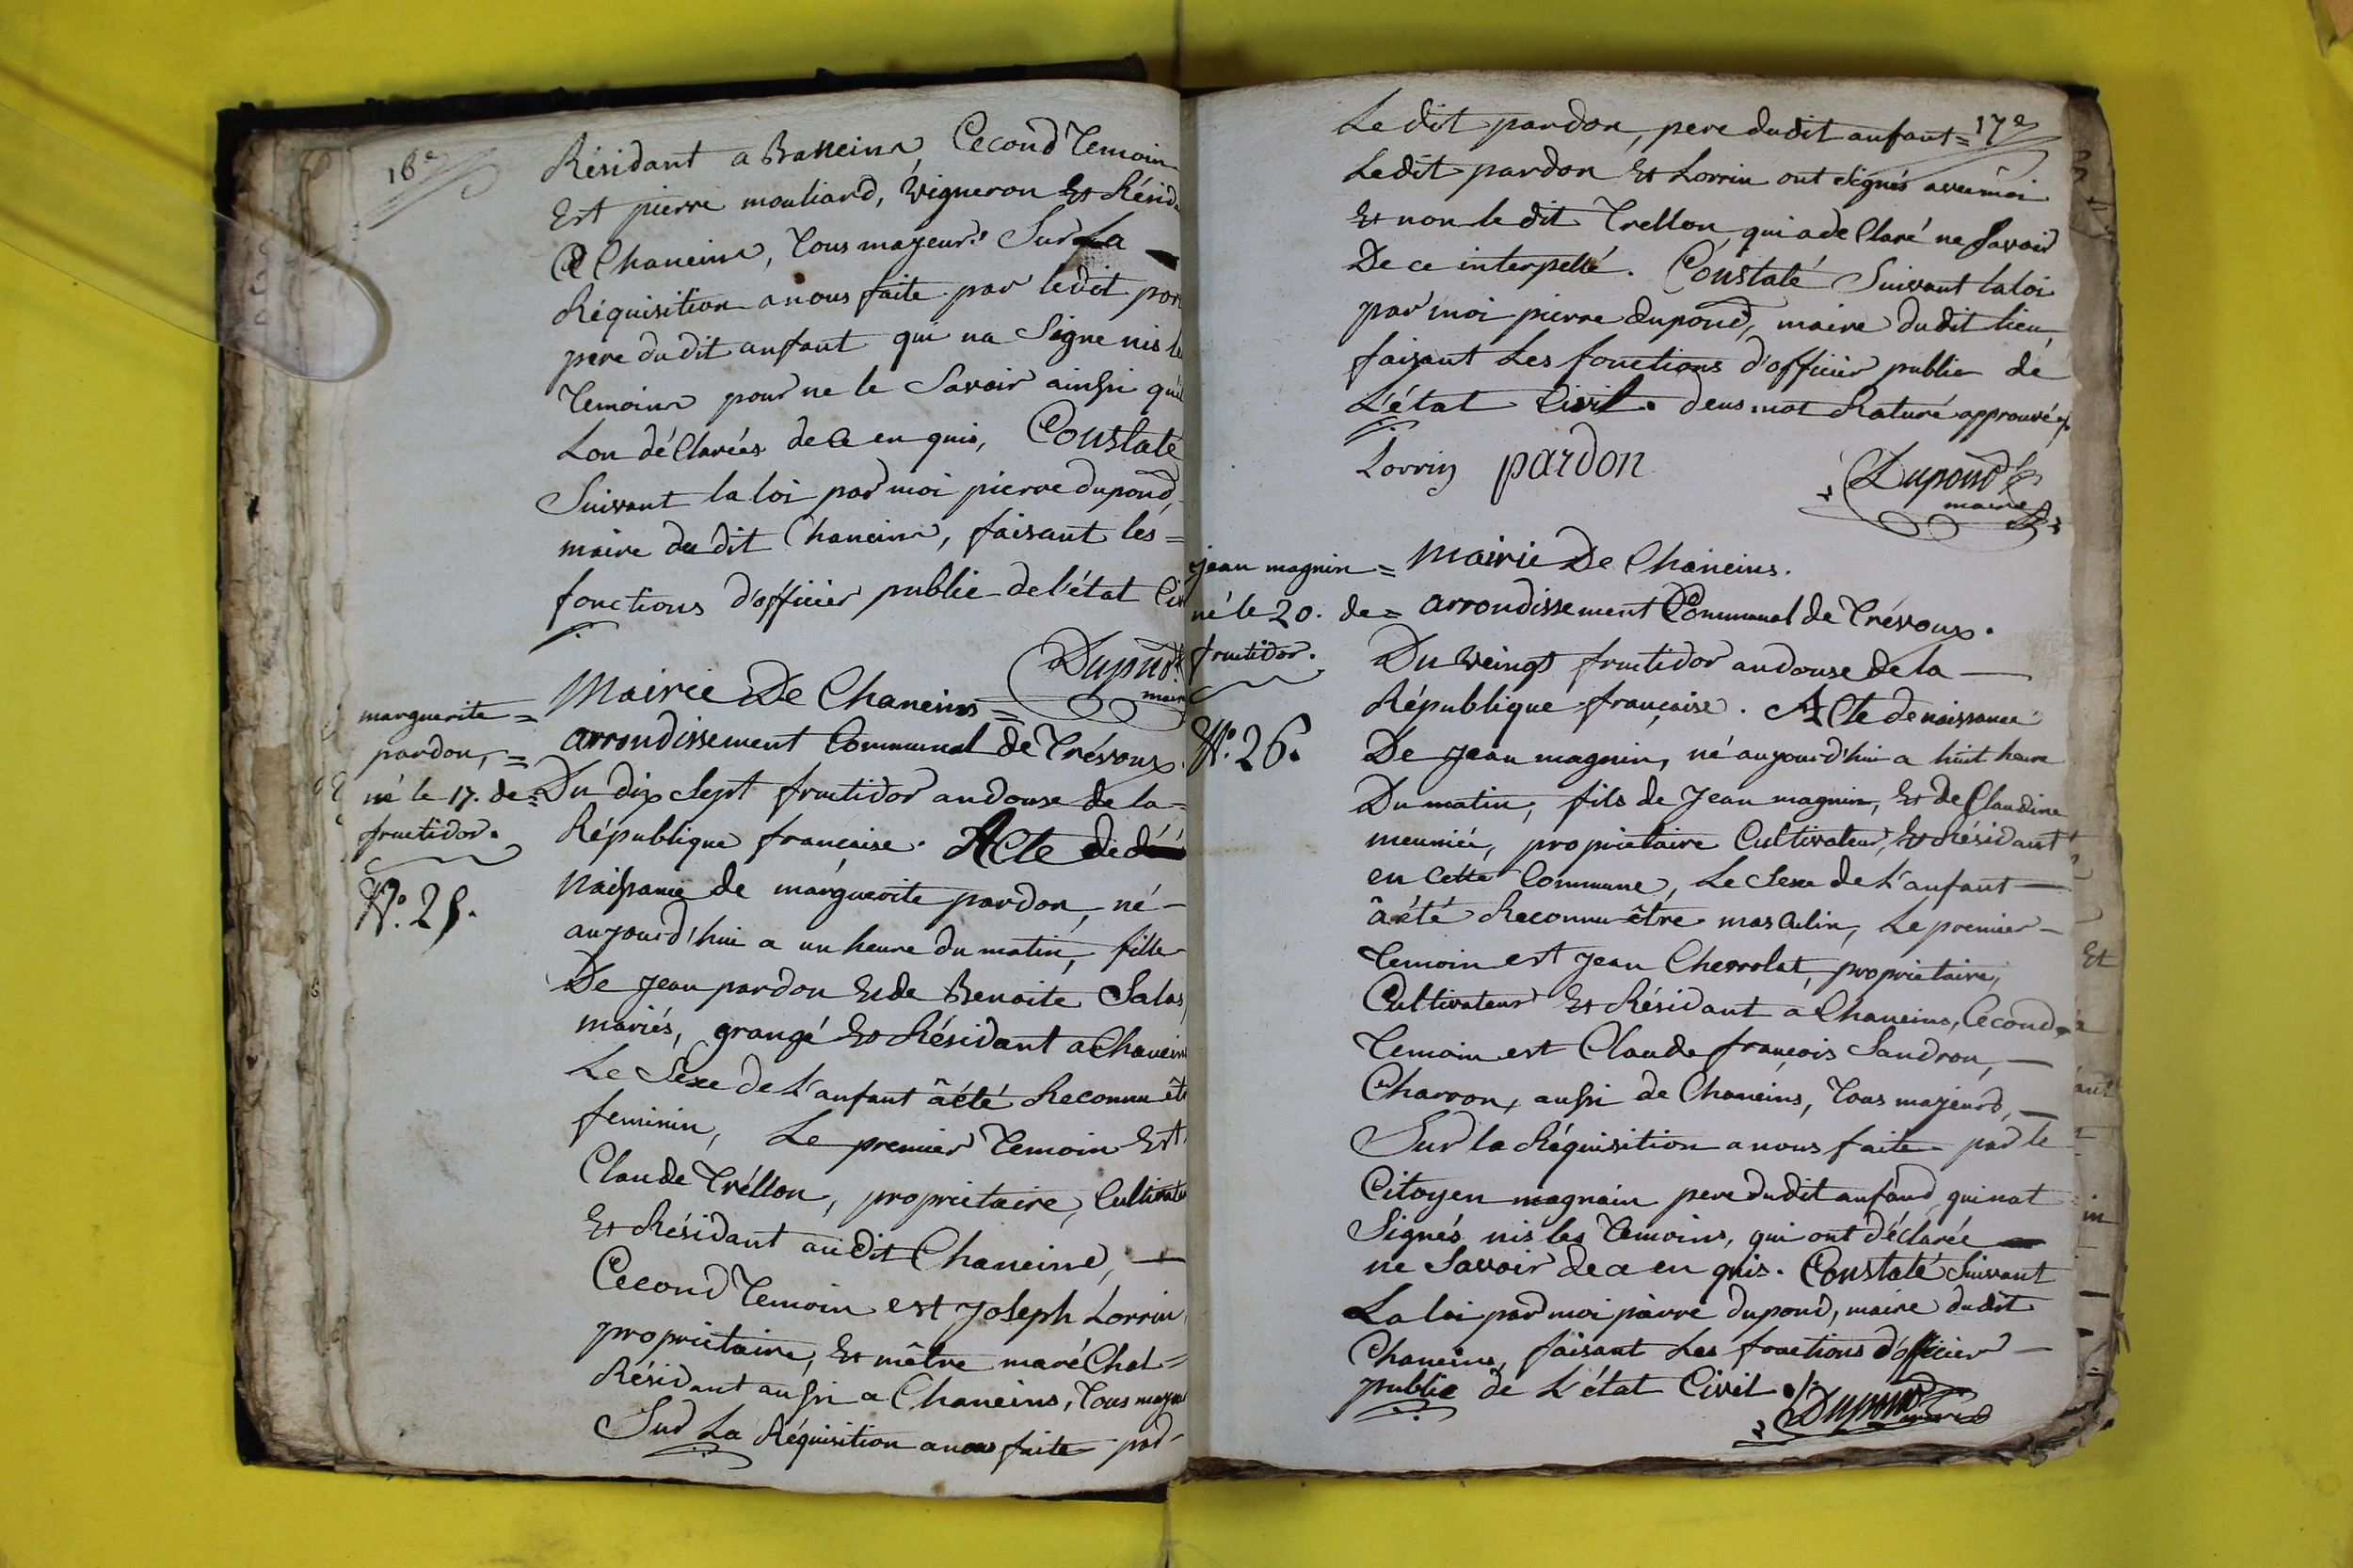 16e
Résidant a Baneins, Cecond Temoin
Est pierre mouliard, Vigneron Et Résid
a Chaneins, Tous majeurs Sur La
Réquisition a nous faite par ledit par
pere du dit anfant qui na Signe nis le
Temoins pour ne le Savoir ainssi qu'il
Lon déClarées de Ce en quis, Constaté
Suivant la loi par moi pierre dupond,
maire du dit Chaneins, faisant les =
fonctions d'officier public de l'état Civ
Dupond
maire
marguerite =
pardon, =
né le 17. de =
fructidor.
N.o 25.
Mairie De Chaneins =
arrondissement Communal de Trévoux.
Du dix Sept fructidor an douse de la =
République française. ACte de
Naissance de marguerite pardon, né -
aujourd'hui a un heure du matin, fille
De Jean pardon Et de Benoite Salas
mariés, grangé Et Résidant a Chanein
Le Sexe de L'anfant âété Reconnu êt
feminin, Le premier Temoin Est
Claude Tréllon, proprietaire, Cultivate
Et Résidant audit Chaneins, —
Cecond Temoin est Joseph Lorrin
proprietaire, Et mêtre maréChal =
Résidant aussi a Chaneins, Tous majeu
Sur La Réquisition a nous faite par
17e
Le dit pardon, pere du dit anfant =
Le dit pardon Et Lorrin ont Signés avec moi
Et non le dit Trellon qui a déClaré ne Savoir
De ce interpellé. Constaté Suivant la loi
par moi pierre dupond, maire du dit lieu,
faisant Les fonctions d'officier public de
L'état Civil. deus mot Raturé approuvé
Lorrin pardon
Dupond
maire
jean magnin =
né le 20. de =
fructidor.
N.o 26.
Mairie De Chaneins.
arrondissement Communal de Trévoux.
Du Veingt fructidor an douse de la —
République française. ACte de naissance
De Jean magnin, né aujourd'hui a huit heure
Du matin, fils de Jean magnin, Et de Claudine
meuniée, proprietaire Cultivateur, Et Résidant
en Cette Commune, Le Sexe de L'anfant —
âété Reconnu être masCulin, Le premier —
Temoin est Jean Chevrolat, proprietaire,
Cultivateur Et Résidant a Chaneins, Cecond
Temoin est Claude françois Sandron, —
Charron, aussi de Chaneins, Tous majeurs, —
Sur la Réquisition a nous faite par le
Citoyen magnain pere du dit anfand, qui nat
Signés nis les Temoins, qui ont déclarée
ne Savoir de Ce en quis. Constaté Suivant
La loi par moi pierre dupond, maire du dit
Chaneins, faisant Les fonctions d'officier —
public de L'état Civil ./.
Dupond
maire